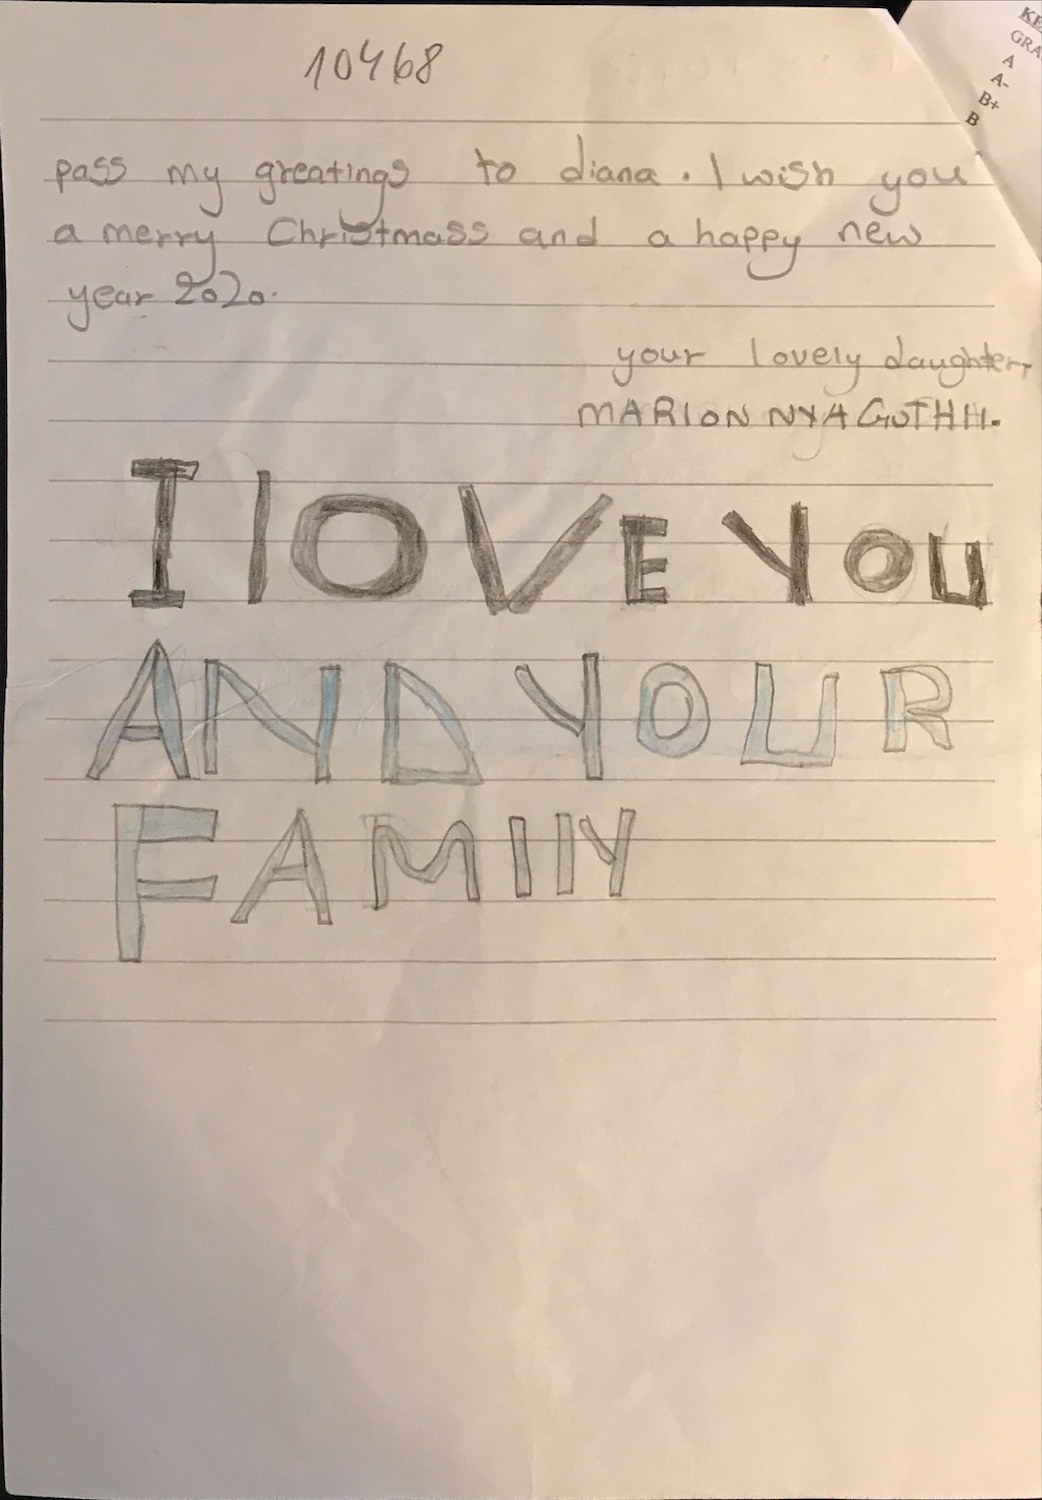 10468
KE
GRA
A
A-
B+
B
pass my greatings to diana. I wish you
a merry Christmass and a happy new
year 2020.
your lovely daughter,
MARION NYAGUTHII.
I lOVE YOU
AND YOUR
FAMIlY